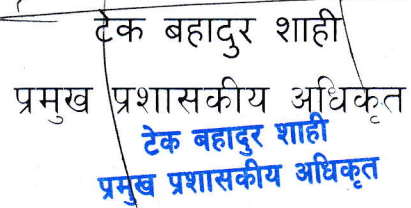 टेक बहादुर शाही
प्रमुख प्रशासकीय अधिकृत
टेक बहादुर शाही
प्रमुख प्रशासकीय अधिकृत